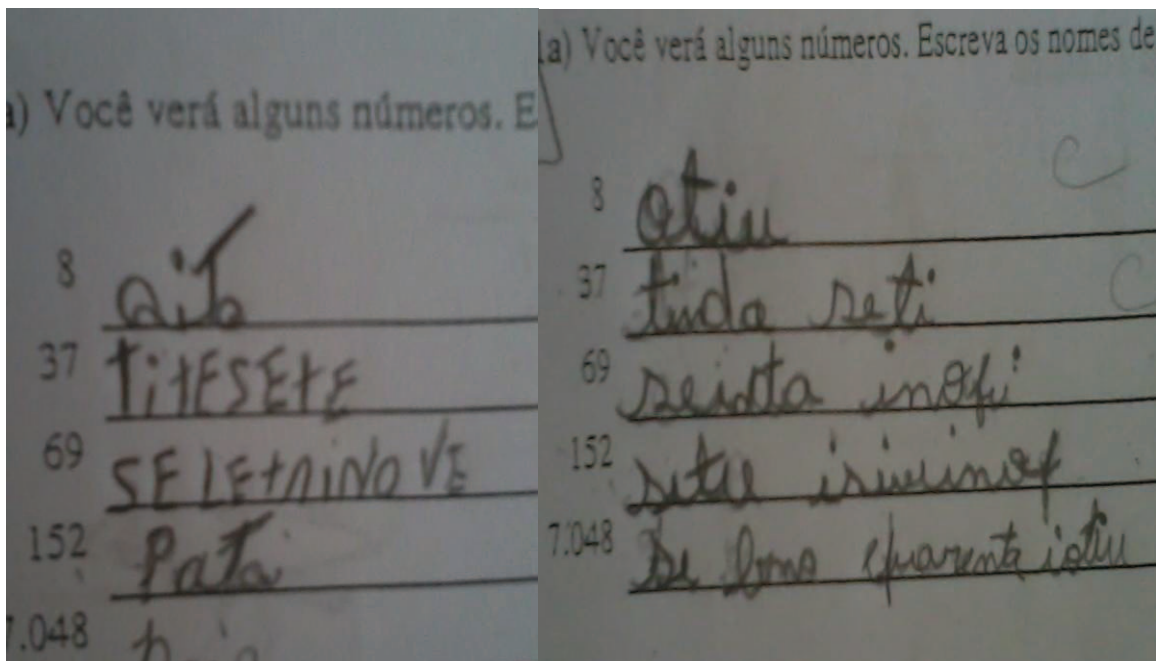 a) Você verá alguns números. E
8 oito
37 TitESEtE
69 SELEtNiNOVE
152 Pata
7.048
1a) Você verá alguns números. Escreva os nomes de
C
8 otiu
37 tinda seti
C
69 seista inofi
152 setu isiuinof
7.048 se lono quarenta iotiu